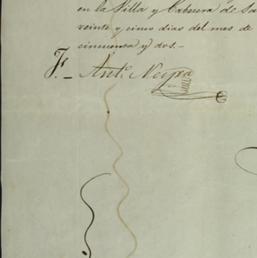 en la Villa y Cabecera de Sa
veinte y cinco dias del mes de
cincuenta y dos.—
F.— Ant.